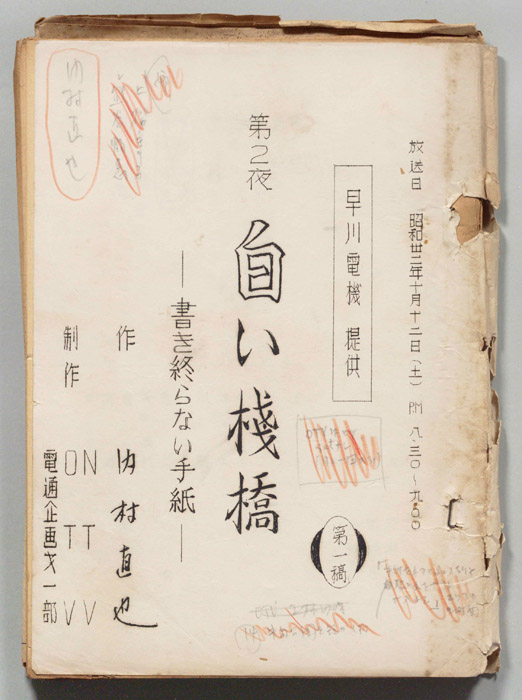 放送日 昭和卅三年十月十二日(土) PM 八・三〇〜九・〇〇
早川電機 提供
第一稿
第2夜
白い棧橋
―書き終らない手紙―
作 内村直也
制作 NTV
OTV
電通企画才一部
内村直也